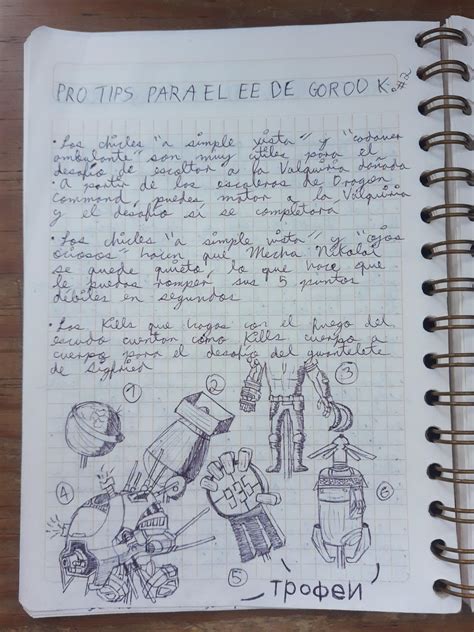 PRO TIPS PARA EL EE DE GOROD K. #2
• Los chicles "a simple vista" y "cadaver
ambulante" son muy utiles para el
desafio de escoltar a la Valquiria dañada
• A partir de las escaleras de Dragon
command, puedes matar a la Valquiria
y el desafio si se completara
• Los chicles "a simple vista" y "ojos
ociosos" hacen que Mecha Nikolai
se quede quieto, lo que hace que
le puedas romper sus 5 puntos
débiles en segundos
• Las Kills que hagas con el fuego del
escudo cuentan como Kills cuerpo a
cuerpo para el desafio del guantelete
de Sigfried
1
2
3
4
5
6
935
трофеи